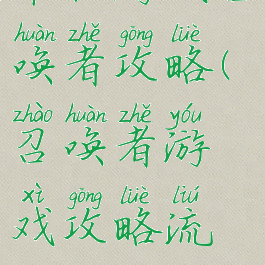 huàn zhě gōng lüè
唤者攻略(
zhào huàn zhě yóu
召唤者游
xì gōng lüè liú
戏攻略流